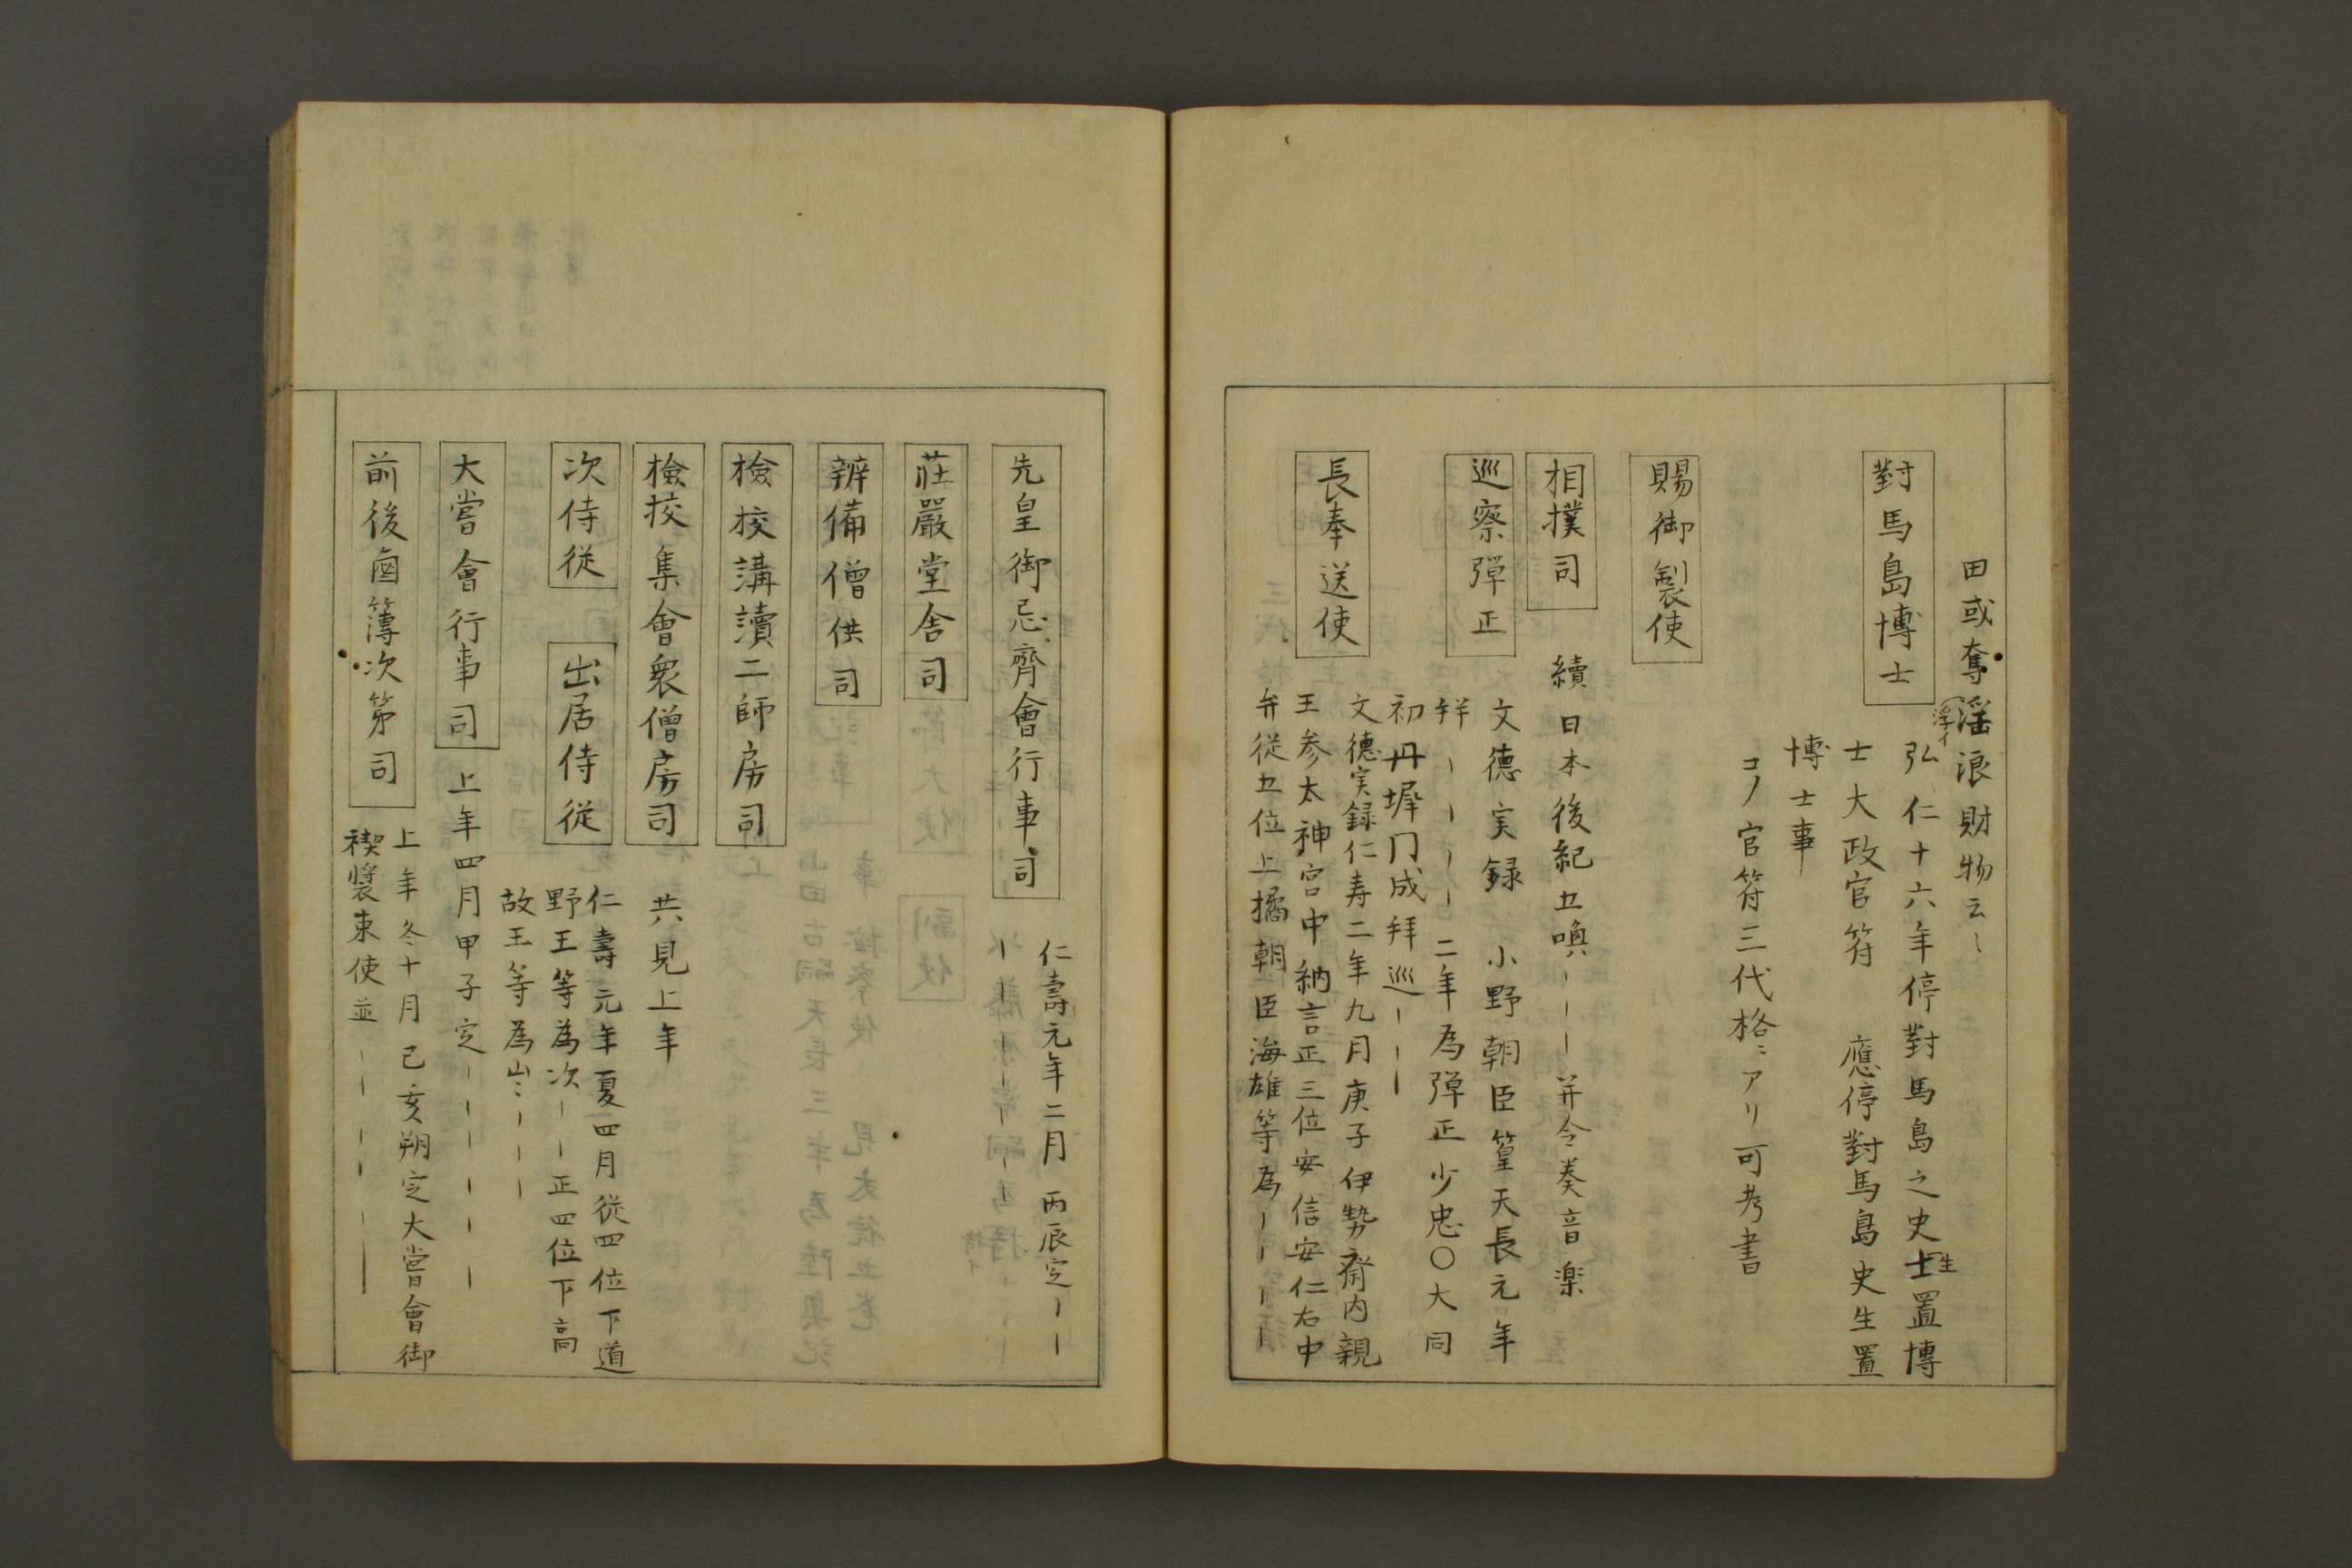 田或奪淫浪財物云〻
浮イ
對馬島博士
弘仁十六年停對馬島之史士置博
生
士大政官符　應停對馬島史生置
博士事
コノ官符三代格ニアリ可考書
賜御製使
相撲司　續日本後紀五喚〡〡〡并令奏音楽
巡察彈正　文德実録　小野朝臣篁天長元年
拜〡〡〡〡〡二年為彈正少忠〇大同
初丹墀门成拜巡〡〡〡
長奉送使　文德実録仁寿二年九月庚子伊勢齋内親
王参太神宮中納言正三位安信安仁右中
弁從五位上橘朝臣海雄等為〡〡〡〡
先皇御忌齊會行事司　仁壽元年二月丙辰定〡〡
〡〡〡〡〡〡
莊嚴堂舎司
辨備僧供司
檢校講讀二師房司
檢挍集會衆僧房司　共見上年
次侍従　出居侍従　仁壽元年夏四月從四位下道
野王等為次〡〡正四位下高
故王等為出〻〡〡〡
大嘗會行事司　上年四月甲子定〡〡〡〡〡〡
前後鹵簿次第司　上年冬十月己亥朔定大嘗會御
禊裝束使並〡〡〡〡〡〡